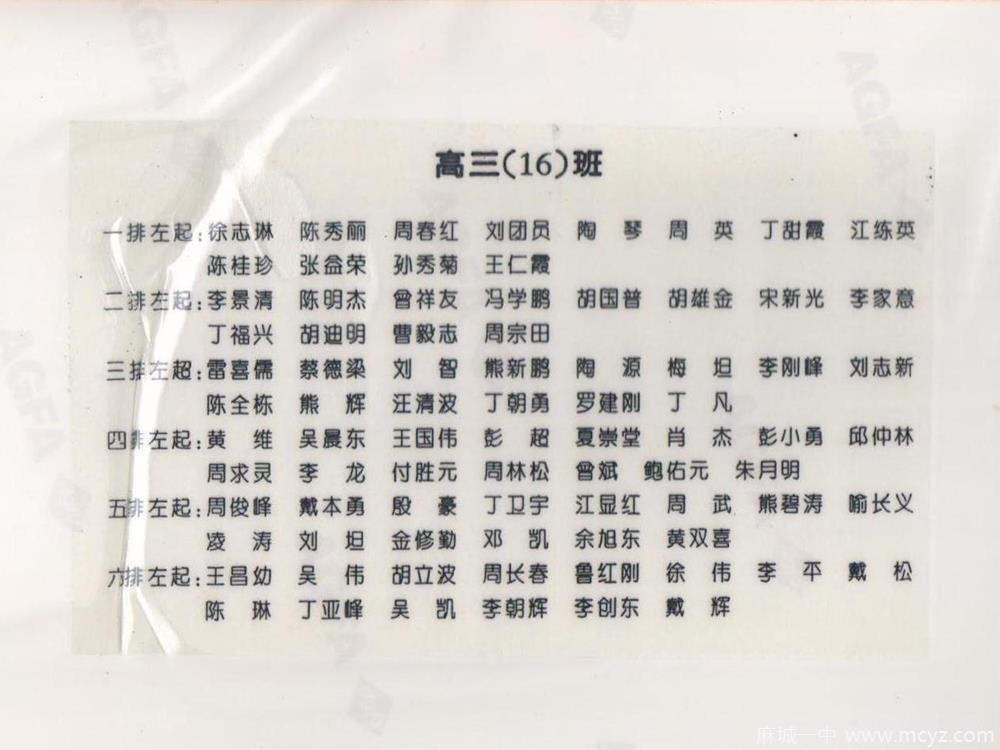 高三(16)班
一排左起:徐志琳 陈秀丽 周春红 刘团员 陶 琴 周 英 丁甜霞 江练英
陈桂珍 张益荣 孙秀菊 王仁霞
二排左起:李景清 陈明杰 曾祥友 冯学鹏 胡国普 胡雄金 宋新光 李家意
丁福兴 胡迪明 曹毅志 周宗田
三排左超:雷喜儒 蔡德梁 刘 智 熊新鹏 陶 源 梅 坦 李刚峰 刘志新
陈全栋 熊 辉 汪清波 丁朝勇 罗建刚 丁 凡
四排左起:黄 维 吴晨东 王国伟 彭 超 夏崇堂 肖 杰 彭小勇 邱仲林
周求灵 李 龙 付胜元 周林松 曾斌 鲍佑元 朱月明
五排左起:周俊峰 戴本勇 殷 豪 丁卫宇 江显红 周 武 熊碧涛 喻长义
凌 涛 刘 坦 金修勤 邓 凯 余旭东 黄双喜
六排左起:王昌幼 吴 伟 胡立波 周长春 鲁红刚 徐 伟 李 平 戴 松
陈 琳 丁亚峰 吴 凯 李朝辉 李创东 戴 辉
AGFA
AGFA
AGFA
麻城一中 www.mcyz.com